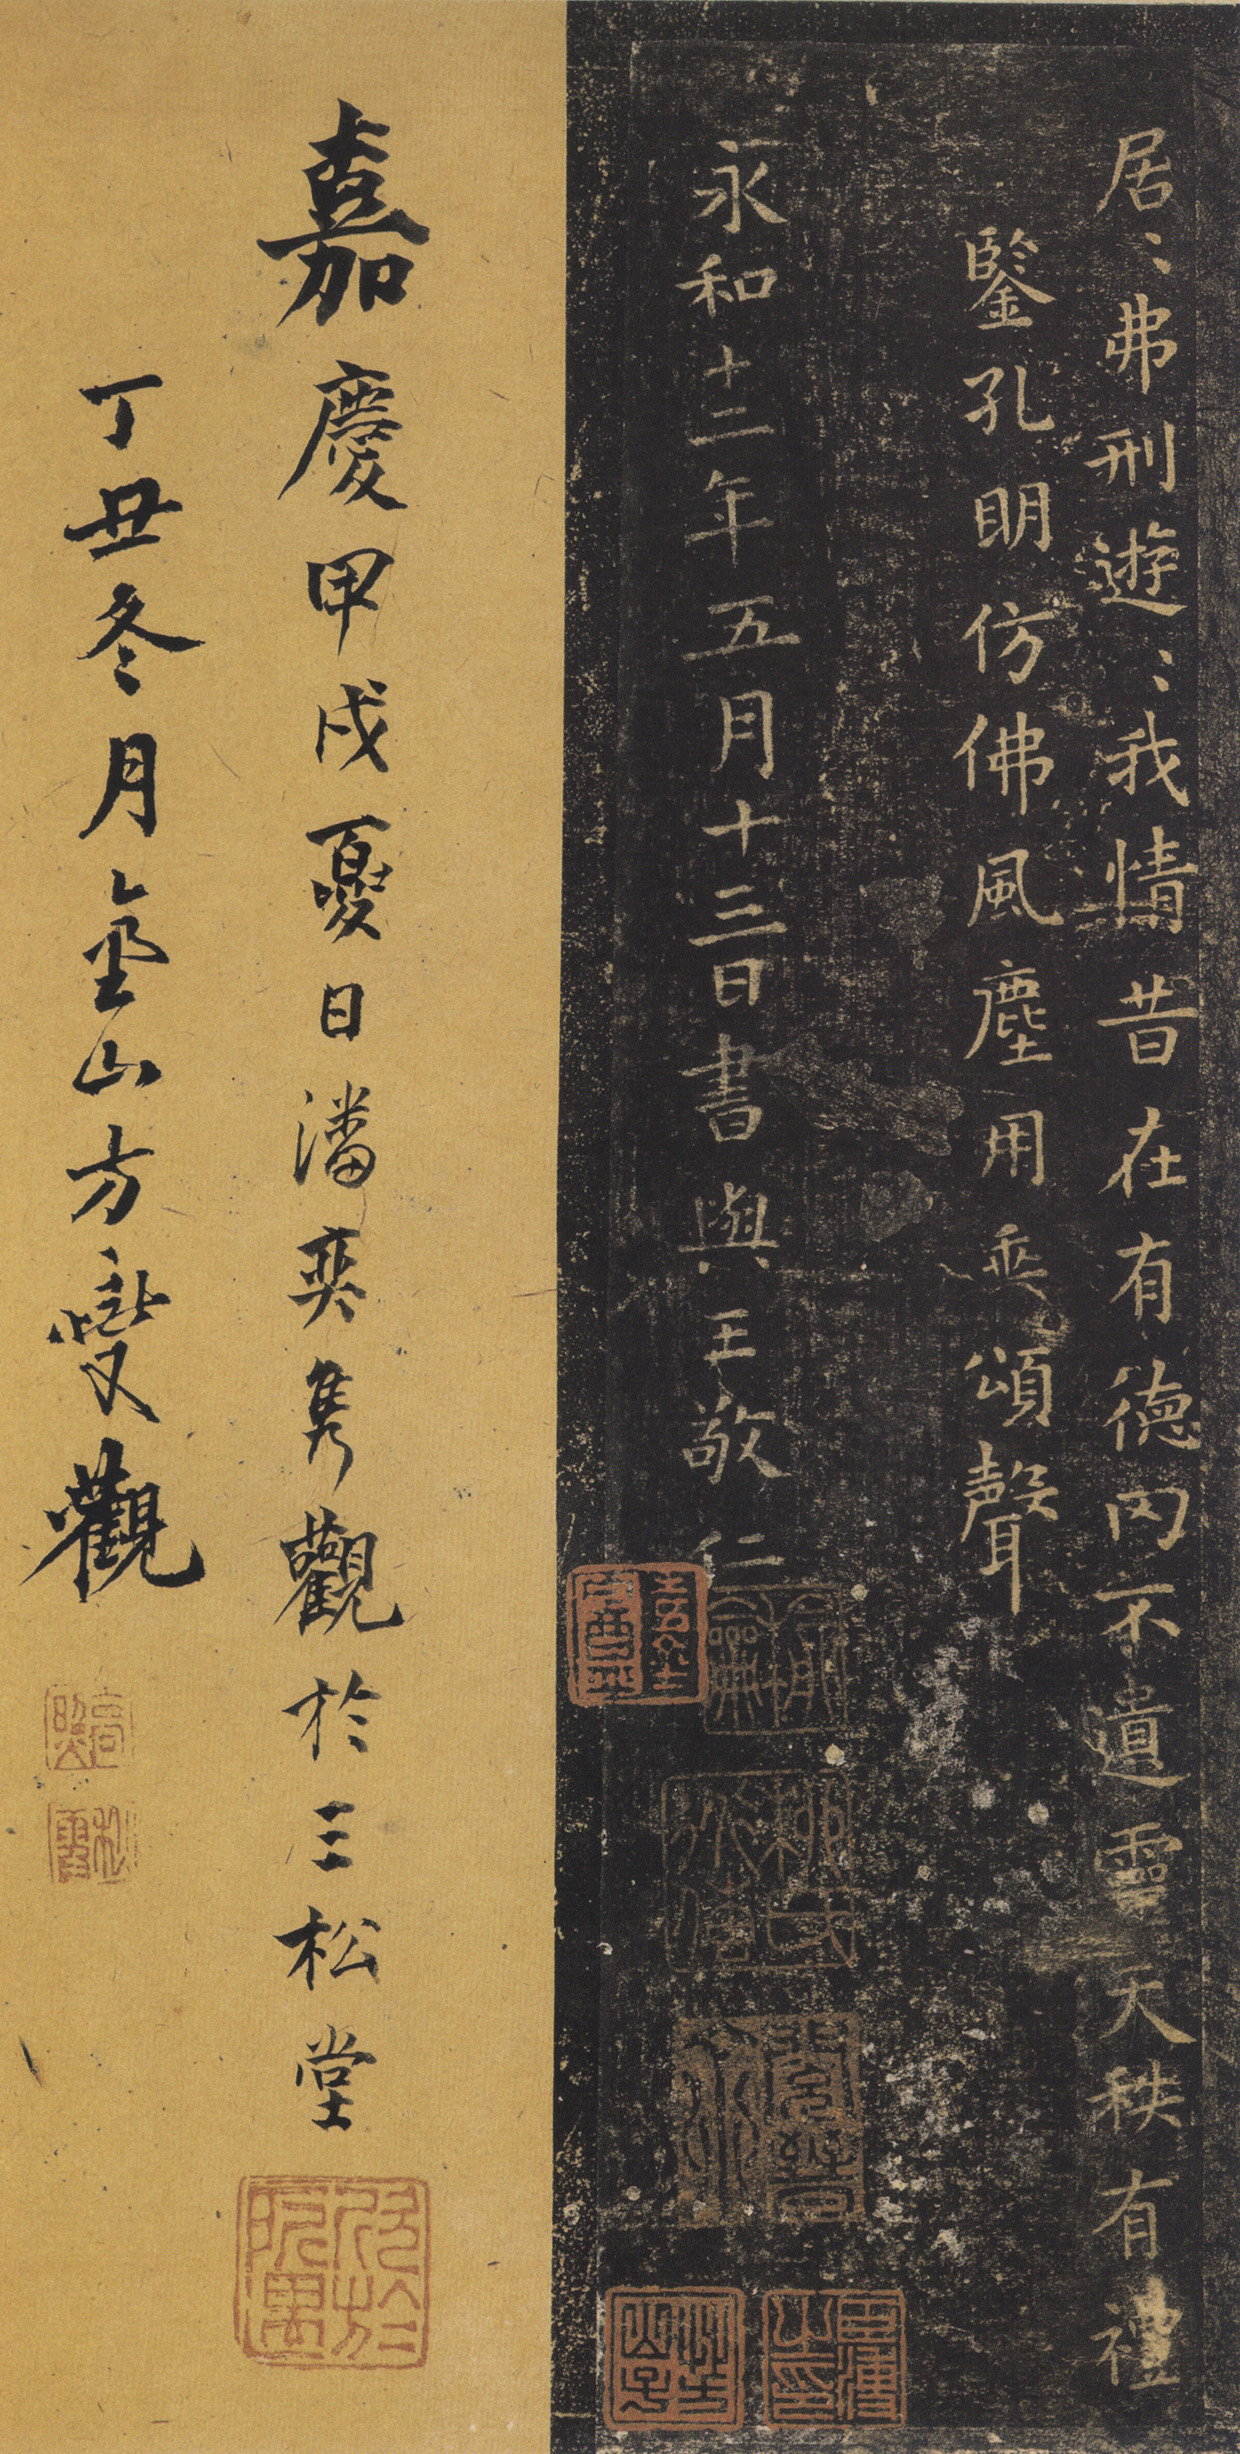 居〻弗刑遊〻我情昔在有德罔不遺靈天秩有禮
鑒孔明仿佛風塵用垂頌聲
永和十二年五月十三日書與王敬仁
嘉慶甲戌夏日潘奕雋觀於三松堂
丁丑冬月壑山方燮觀